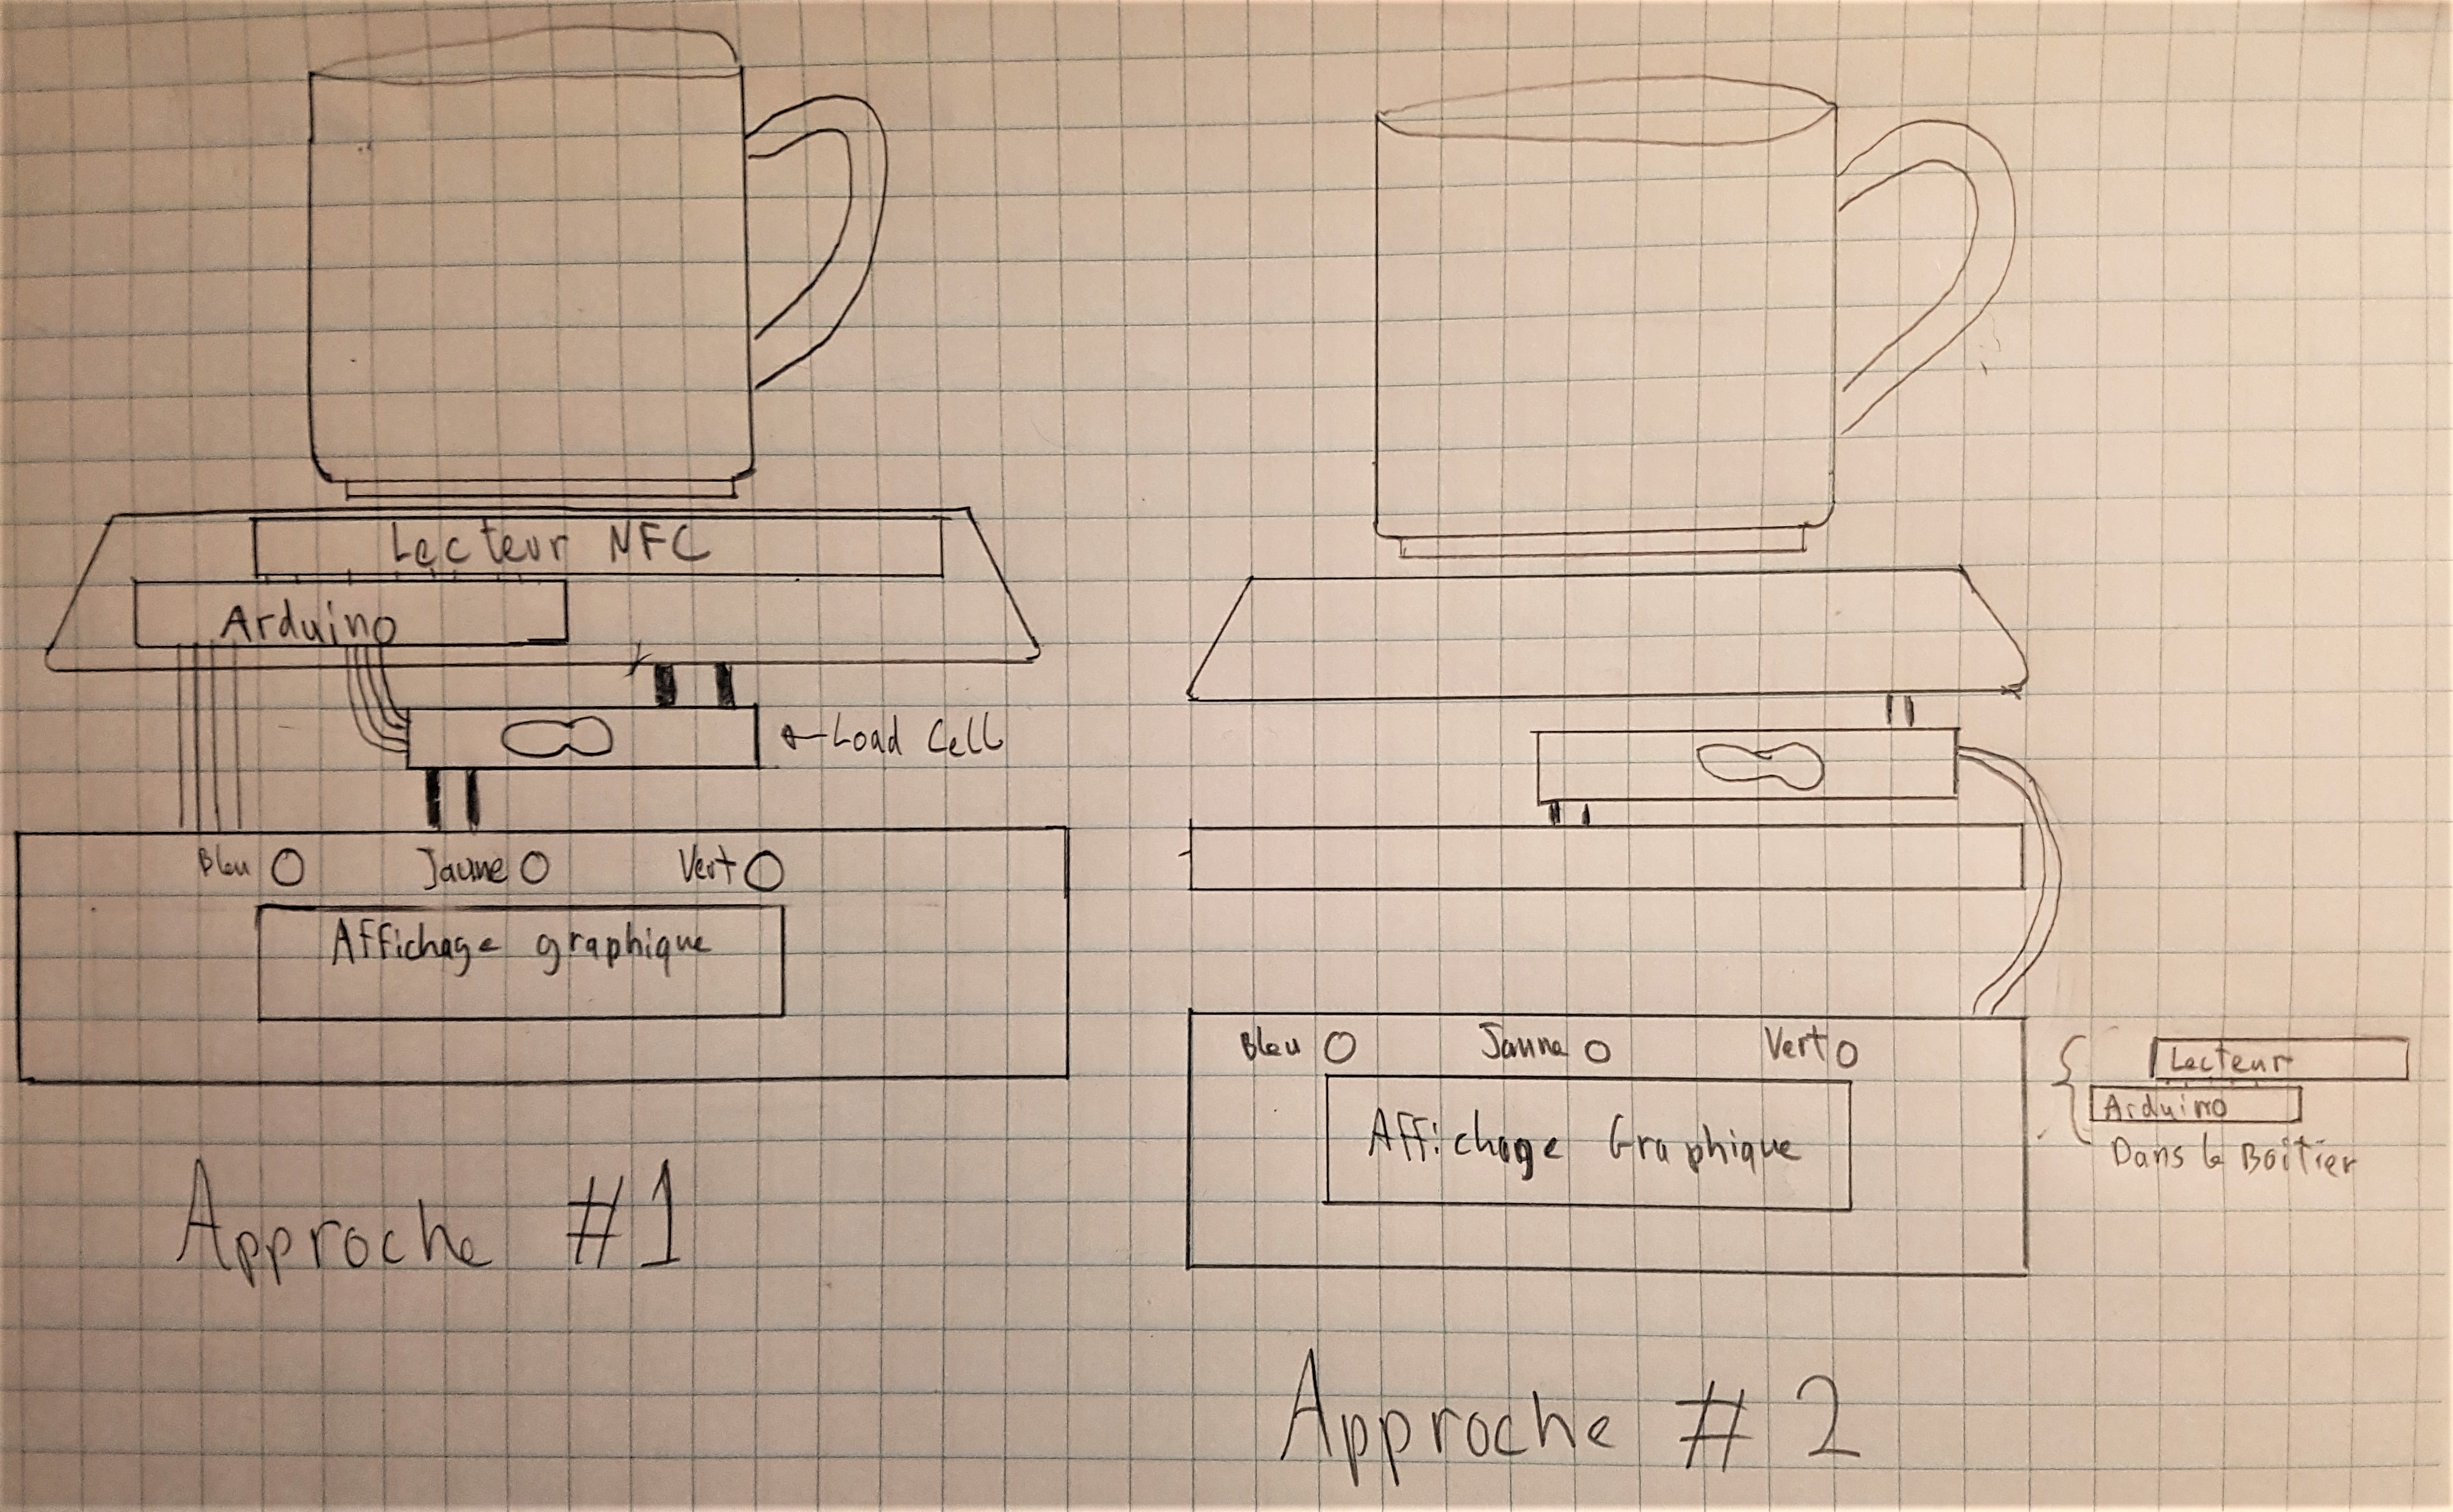 Lecteur NFC
Arduino
Load Cell
Bleu
Jaune
Vert
Affichage graphique
Approche #1
Bleu
Jaune
Vert
Affichage Graphique
Lecteur
Arduino
Dans le Boîtier
Approche # 2